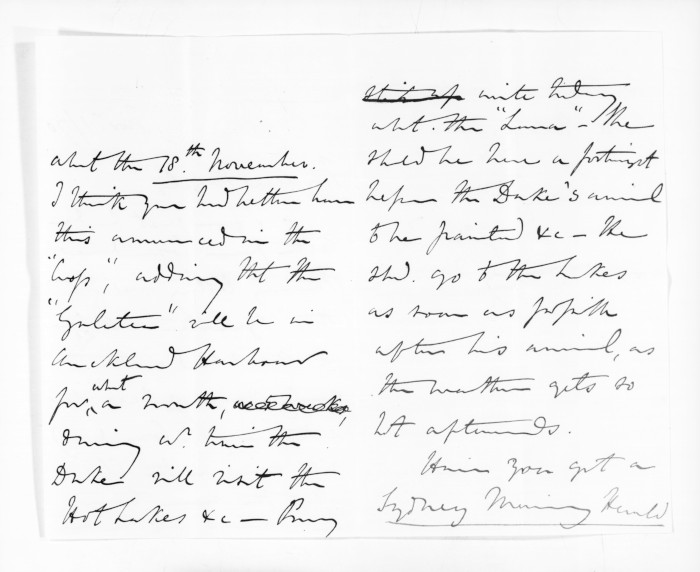 abt the 18.th November.
I think you had better have
this announced in the
"Cross", adding tht the
"Galatea" will be in
Auckland Harbour
for abt a month,
during wh. time the
Duke will visit the
Hot Lakes &c — Pray
write Sidney
abt. the "Luna" – She
shd be here a fortnight
before the Duke's arrival
to be painted &c – He
shd. go to the Lakes
as soon as possible
after his arrival, as
the weather gets so
hot afterwards.
Have you got a
Sydney Morning Herald